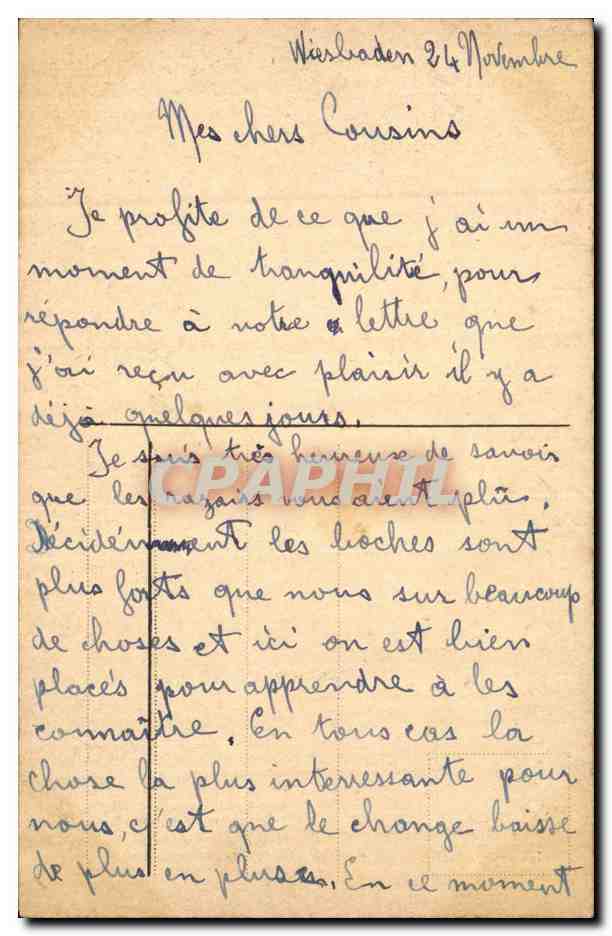 Wiesbaden 24 Novembre
Mes chers Cousins
Je profite de ce que j'ai un
moment de tranquilité, pour
répondre à votre lettre que
j'ai reçu avec plaisir il y a
déjà quelques jours.
Je suis très heureuse de savoir
que les vous aient plû.
Décidément les boches sont
plus forts que nous sur beaucoup
de choses et ici on est bien
placés pour apprendre à les
connaître. En tous cas la
chose la plus interressante pour
nous, c'est que le change baisse
de plus en plus. En ce moment
CPAPHIL